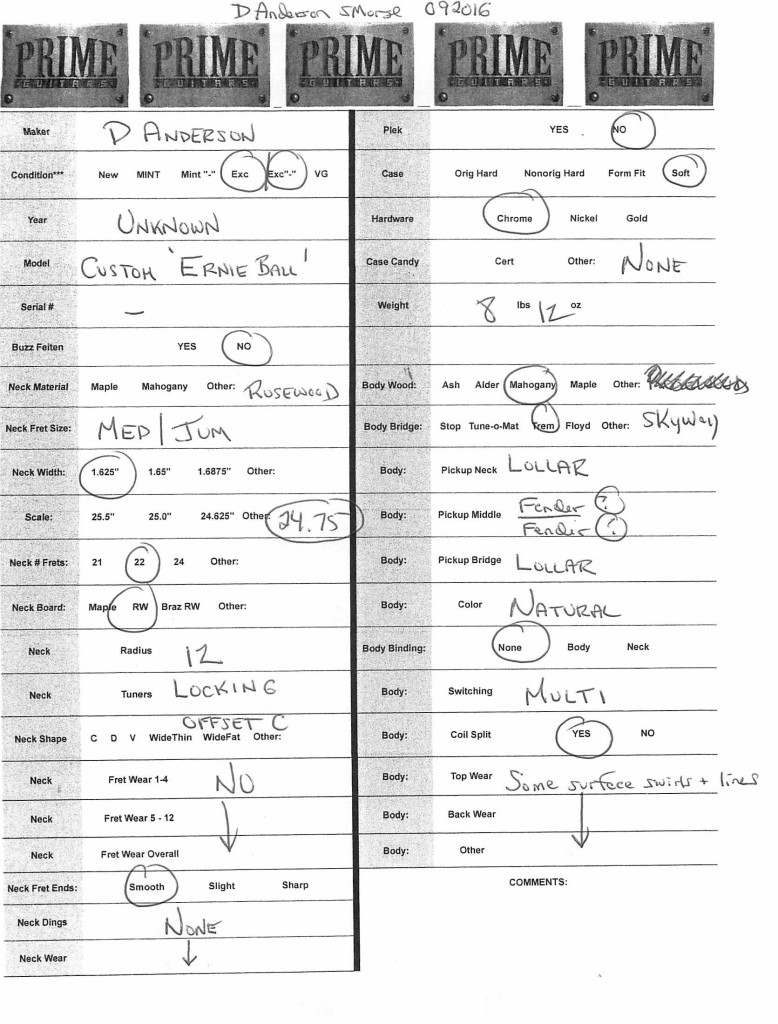 D Anderson SMorse 092016
PRIME GUITARS PRIME GUITARS PRIME GUITARS PRIME GUITARS PRIME GUITARS
Maker D ANDERSON
Condition*** New MINT Mint "-" Exc Exc"-" VG
Year UNKNOWN
Model CUSTOM 'ERNIE BALL'
Serial # —
Buzz Feiten YES NO
Neck Material Maple Mahogany Other: ROSEWOOD
Neck Fret Size: MED/JUM
Neck Width: 1.625" 1.65" 1.6875" Other:
Scale: 25.5" 25.0" 24.625" Other: 24.75
Neck # Frets: 21 22 24 Other:
Neck Board: Maple RW Braz RW Other:
Neck Radius 12
Neck Tuners LOCKING
OFFSET C
Neck Shape C D V WideThin WideFat Other:
Neck Fret Wear 1-4 NO
Neck Fret Wear 5 - 12
Neck Fret Wear Overall
Neck Fret Ends: Smooth Slight Sharp
Neck Dings NONE
Neck Wear
Plek YES NO
Case Orig Hard Nonorig Hard Form Fit Soft
Hardware Chrome Nickel Gold
Case Candy Cert Other: NONE
Weight 8 lbs 12 oz
Body Wood: Ash Alder Mahogany Maple Other:
Body Bridge: Stop Tune-o-Mat Trem Floyd Other: SKyway
Body: Pickup Neck LOLLAR
Body: Pickup Middle Fender ?
Fender ?
Body: Pickup Bridge LOLLAR
Body: Color NATURAL
Body Binding: None Body Neck
Body: Switching MULTI
Body: Coil Split YES NO
Body: Top Wear Some surface swirls + lines
Body: Back Wear
Body: Other
COMMENTS: